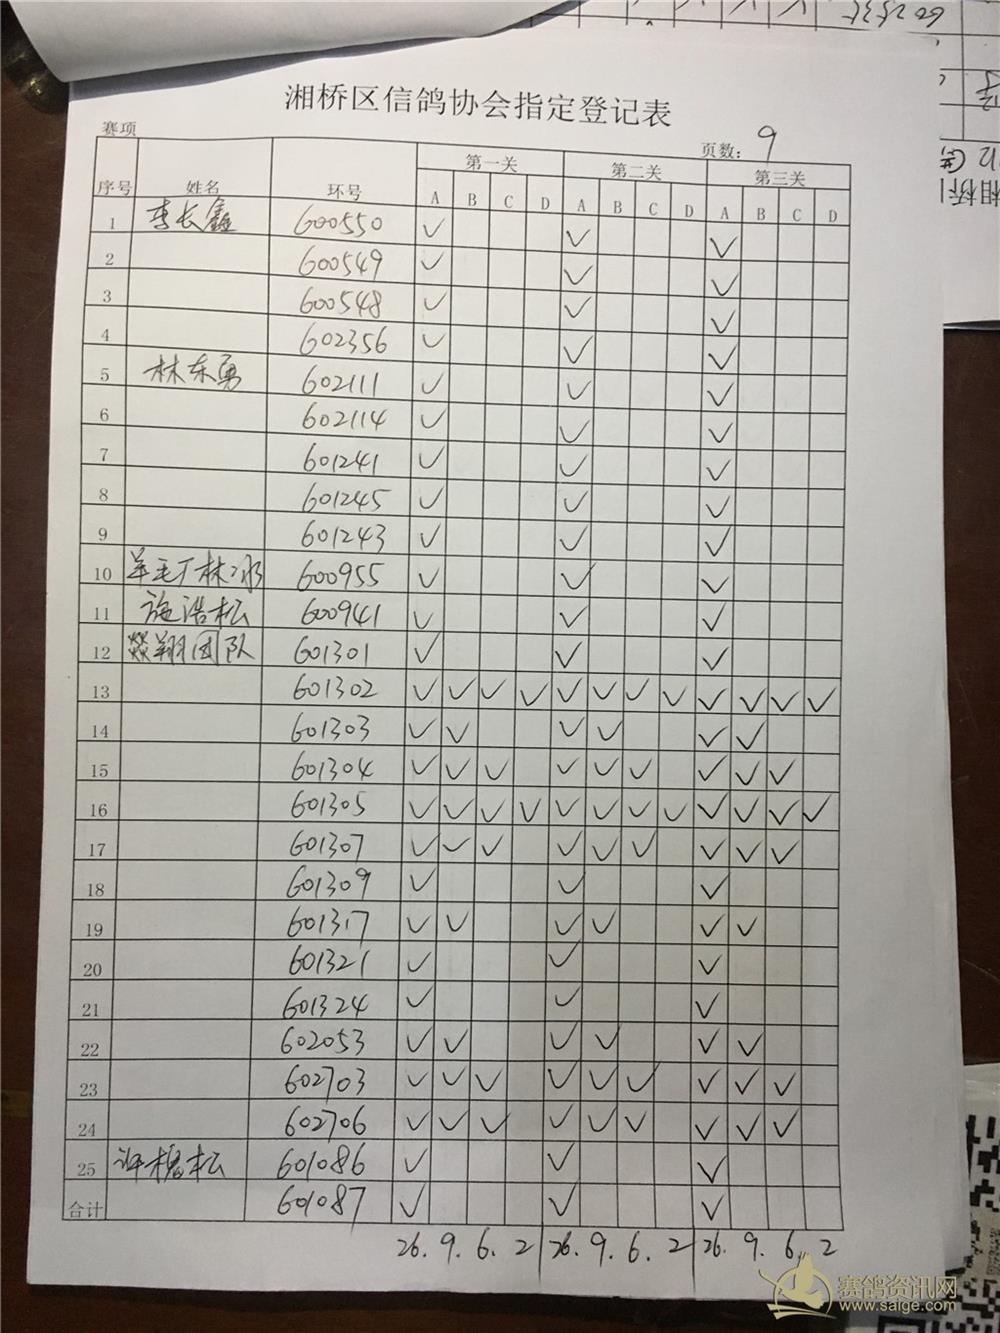 湘桥区信鸽协会指定登记表
赛项 页数: 9
序号 姓名 环号 第一关 第二关 第三关
A B C D A B C D A B C D
1 李长鑫 600550 ✓ ✓ ✓
2 600549 ✓ ✓ ✓
3 600548 ✓ ✓ ✓
4 602356 ✓ ✓ ✓
5 林东勇 602111 ✓ ✓ ✓
6 602114 ✓ ✓ ✓
7 601241 ✓ ✓ ✓
8 601245 ✓ ✓ ✓
9 601243 ✓ ✓ ✓
10 羊毛厂林冰 600955 ✓ ✓ ✓
11 施浩松 600941 ✓ ✓ ✓
12 燚翔团队 601301 ✓ ✓ ✓
13 601302 ✓ ✓ ✓ ✓ ✓ ✓ ✓ ✓ ✓ ✓ ✓ ✓
14 601303 ✓ ✓ ✓ ✓ ✓ ✓
15 601304 ✓ ✓ ✓ ✓ ✓ ✓ ✓ ✓ ✓
16 601305 ✓ ✓ ✓ ✓ ✓ ✓ ✓ ✓ ✓ ✓ ✓ ✓
17 601307 ✓ ✓ ✓ ✓ ✓ ✓ ✓ ✓ ✓
18 601309 ✓ ✓ ✓
19 601317 ✓ ✓ ✓ ✓ ✓ ✓
20 601321 ✓ ✓ ✓
21 601324 ✓ ✓ ✓
22 602053 ✓ ✓ ✓ ✓ ✓ ✓
23 602703 ✓ ✓ ✓ ✓ ✓ ✓ ✓ ✓ ✓
24 602706 ✓ ✓ ✓ ✓ ✓ ✓ ✓ ✓ ✓
25 许槐松 601086 ✓ ✓ ✓
合计 601087 ✓ ✓ ✓
26. 9. 6. 2 26. 9. 6. 2 26. 9. 6. 2
赛鸽资讯网
www.saige.com
湘桥